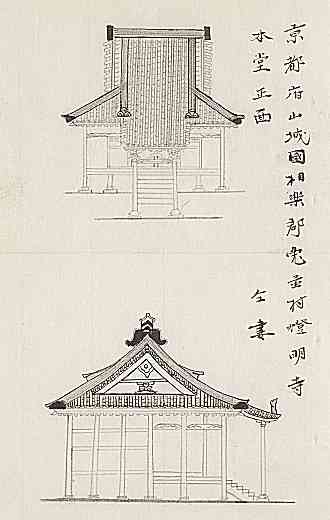 京都府山城國相樂郡兎並村燈明寺
本堂正面
仝妻